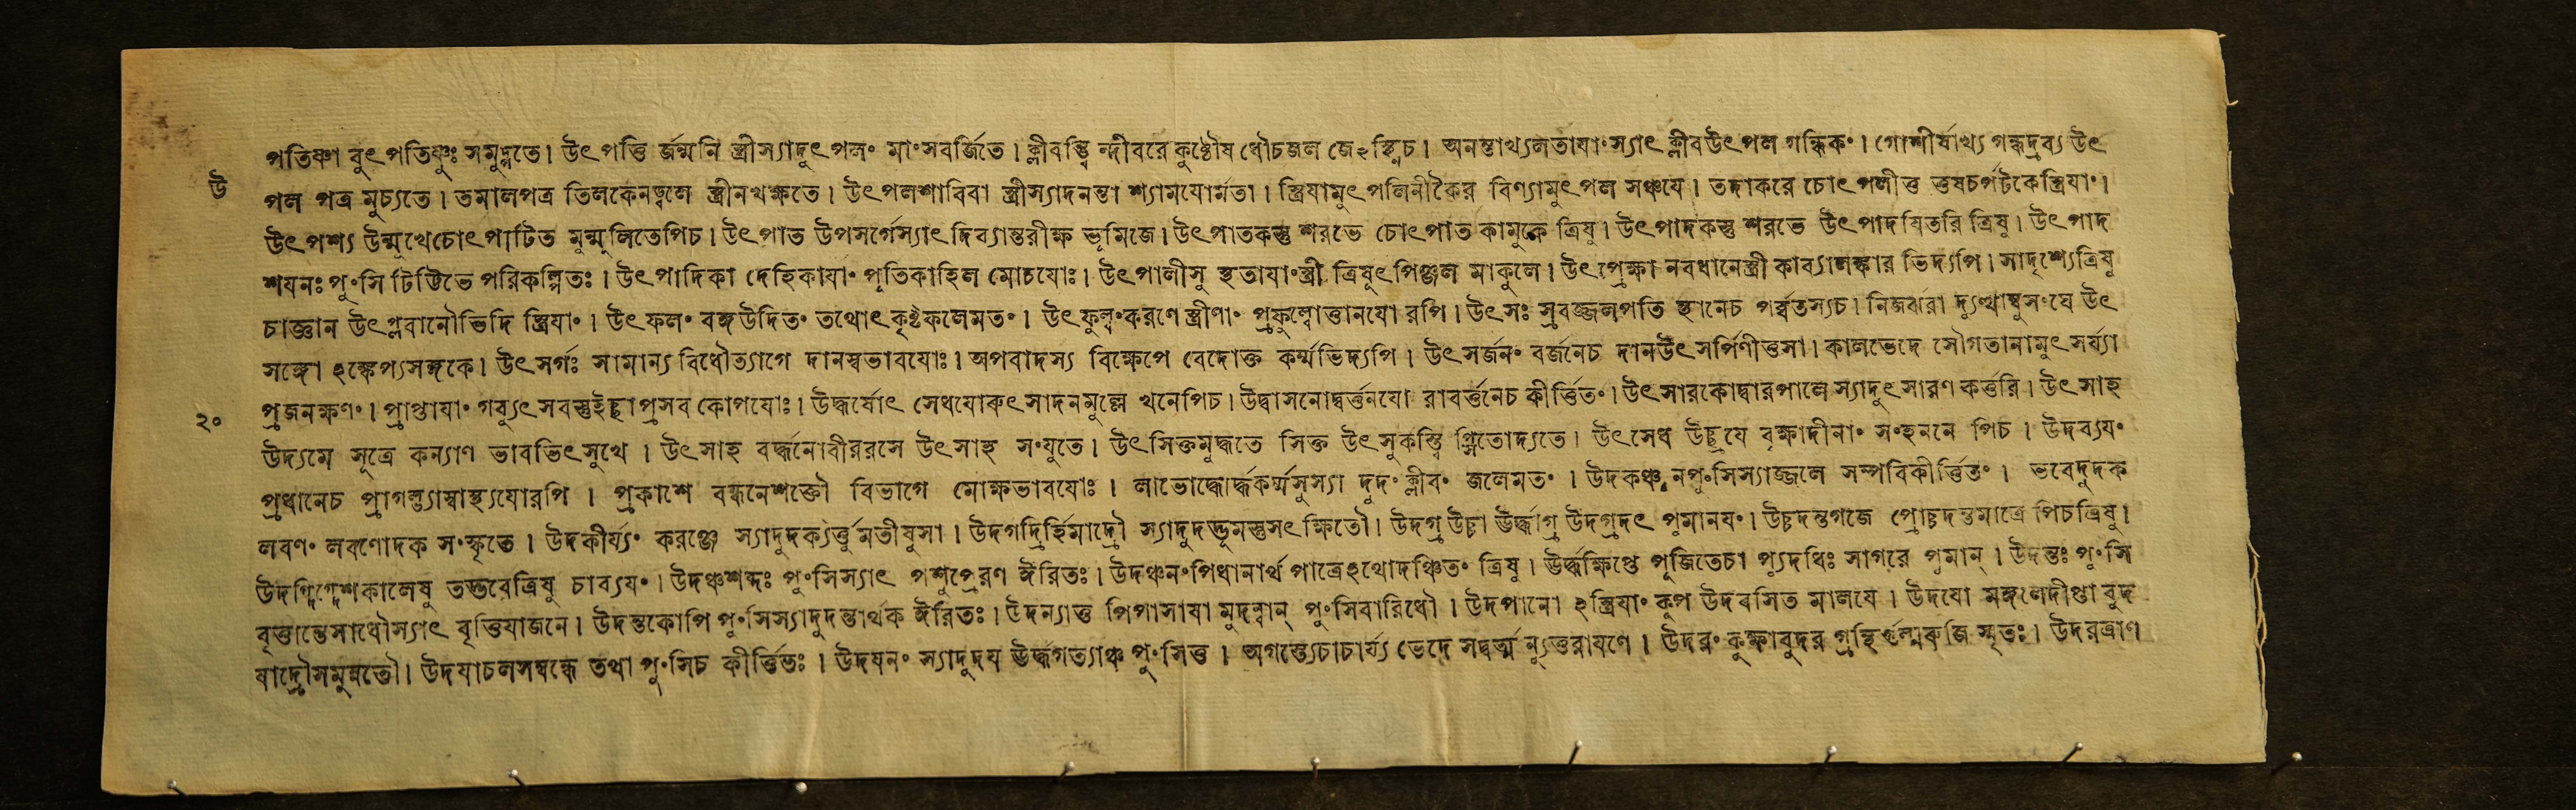 পতিষ্ণা বুৎপতিষ্ণুঃ সমুদ্গতে। উৎপত্তি র্জন্মনি স্ত্রীস্যাদুৎপলং মাংসবর্জিতে। ক্লীবন্ত্বি ন্দীবরে কুষ্টৌষধৌচজল জেঽস্থিচ। অনন্তাখ্যলতাযাংস্যাৎ ক্লীবউৎপল গন্ধিকং। গোশীর্যাখ্য গন্ধদ্রব্য উৎ
উ
পল পত্র মুচ্যতে। তমালপত্র তিলকেনদ্বলে স্ত্রীনখক্ষতে। উৎপলশাবিবা স্ত্রীস্যাদনন্তা শ্যামযোর্মতা। স্ত্রিযামুৎপলিনীকৈর বিণ্যামুৎপল সঞ্চযে। তদাকরে চোৎপলীত্ত ত্তষচর্পটকেস্ত্রিযাং।
উৎপশ্য উন্মুখেচোৎপাটিত মুন্মুলিতেপিচ। উৎপাত উপসর্গেস্যাৎ দিব্যান্তরীক্ষ ভূমিজে। উৎপাতকস্তু শরভে চোৎপাত কামুকে ত্রিষু। উৎপাদকস্তু শরভে উৎপাদযিতরি ত্রিষু। উৎপাদ
শযনঃ পুংসি টিট্টিভে পরিকল্পিতঃ। উৎপাদিকা দেহিকাযাং পূতিকাহিল মোচযোঃ। উৎপালীসু স্থতাযাংস্ত্রী ত্রিষুৎপিঞ্জল মাকুলে। উৎপ্রেক্ষা নবধানেস্ত্রী কাব্যালঙ্কার ভিদ্যপি। সাদৃশ্যেত্রিষু
চাজ্ঞান উৎপ্লবানৌভিদি স্ত্রিযাং। উৎফলং বঙ্গউদিতং তথোৎকৃষ্টফলেমতং। উৎফুল্লংকরণে স্ত্রীণাং প্রফুল্লোত্তানযো রপি। উৎসঃ স্রবজ্জলপতি স্থানেচ পর্ব্বতস্যচ। নিজর্ঝরা দ্যুত্থাম্বুসংঘে উৎ
সঙ্গো ঽঙ্কেপ্যসঙ্গকে। উৎসর্গঃ সামান্য বিধৌত্যাগে দানস্বভাবযোঃ। অপবাদস্য বিক্ষেপে বেদোক্ত কর্ম্মভিদ্যপি। উৎসর্জনং বর্জনেচ দানউৎসর্পিণীত্তসা। কালভেদে সৌগতানামুৎসর্য্যা
প্রজনক্ষণং। প্রাপ্তাযাং গব্যুৎসবস্তুইচ্ছাপ্রসব কোপযোঃ। উদ্ধর্ষোৎ সেধযোরুৎসাদনমুল্লে খনেপিচ। উদ্বাসনোদ্বর্ত্তনযো রাবর্ত্তনেচ কীর্ত্তিতং। উৎসারকোদ্বারপালে স্যাদুৎসারণ কর্ত্তরি। উৎসাহ
২০
উদ্যমে সূত্রে কল্যাণ ভাবভিৎসুখে। উৎসাহ বর্দ্ধনোবীররসে উৎসাহ সংযুতে। উৎসিক্তমুদ্ধতে সিক্ত উৎসুকস্ত্বি তোদ্যতে। উৎসেধ উচ্ছ্রযে বৃক্ষাদীনাং সংহননে পিচ। উদব্যযং
প্রধানেচ প্রাগল্ভ্যাস্বাস্থ্যযোরপি। প্রকাশে বন্ধনেশক্তৌ বিভাগে মোক্ষভাবযোঃ। লাভোদ্ধোর্দ্ধকর্ম্মসুস্যা দুদংক্লীবং জলেমতং। উদকঞ্চ নপুংসিস্যাজ্জলে সম্পবিকীর্ত্তিতং। ভবেদুদক
লবণং লবণোদক সংস্কৃতে। উদকীর্য্যং করঞ্জে স্যাদুদক্যর্ত্তু মতীষুসা। উদগদ্রির্হিমাদ্রৌ স্যাদুদগ্ভূমস্তুসৎ ক্ষিতৌ। উদগ্র উচ্চা ঊর্দ্ধাগ্র উদগ্রদৎ পুমানযং। উচ্চদন্তগজে প্রোচ্চদন্তমাত্রে পিচত্রিষু।
উদগ্দিগ্দেশকালেষু তদ্ভবেত্রিষু চাব্যযং। উদঞ্চশব্দঃ পুংসিস্যাৎ পশুপ্রেরণ ঈরিতঃ। উদঞ্চনংপিধানার্থ পাত্রেঽথোদঞ্চিতং ত্রিষু। ঊর্দ্ধক্ষিপ্তে পূজিতেচা প্যুদধিঃ সাগরে পুমান্। উদন্তঃ পুংসি
বৃত্তান্তেসাধৌস্যাৎ বৃত্তিযাজনে। উদন্তকোপি পুংসিস্যাদুদন্তার্থক ঈরিতঃ। উদন্যাত্ত পিপাসাযা মুদন্বান্ পুংসিবারিধৌ। উদপানো ঽস্ত্রিযাং কূপ উদবসিত মালযে। উদযো মঙ্গলেদীপ্তা বুদ
যাদ্রৌসমুন্নতৌ। উদযাচলসম্বন্ধে তথা পুংসিচ কীর্ত্তিতঃ। উদযনং স্যাদুদয ঊর্দ্ধগত্যাঞ্চ পুংসিত্ত। অগস্ত্যেচাচার্য্য ভেদে সদ্বর্ত্ম ন্যুত্তরাযণে। উদরং কুক্ষাবুদর গ্রন্থির্গুল্মরুজি স্মৃতঃ। উদরত্রাণ